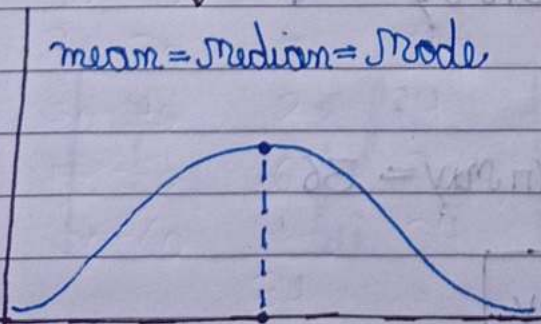 mean = Median = Mode